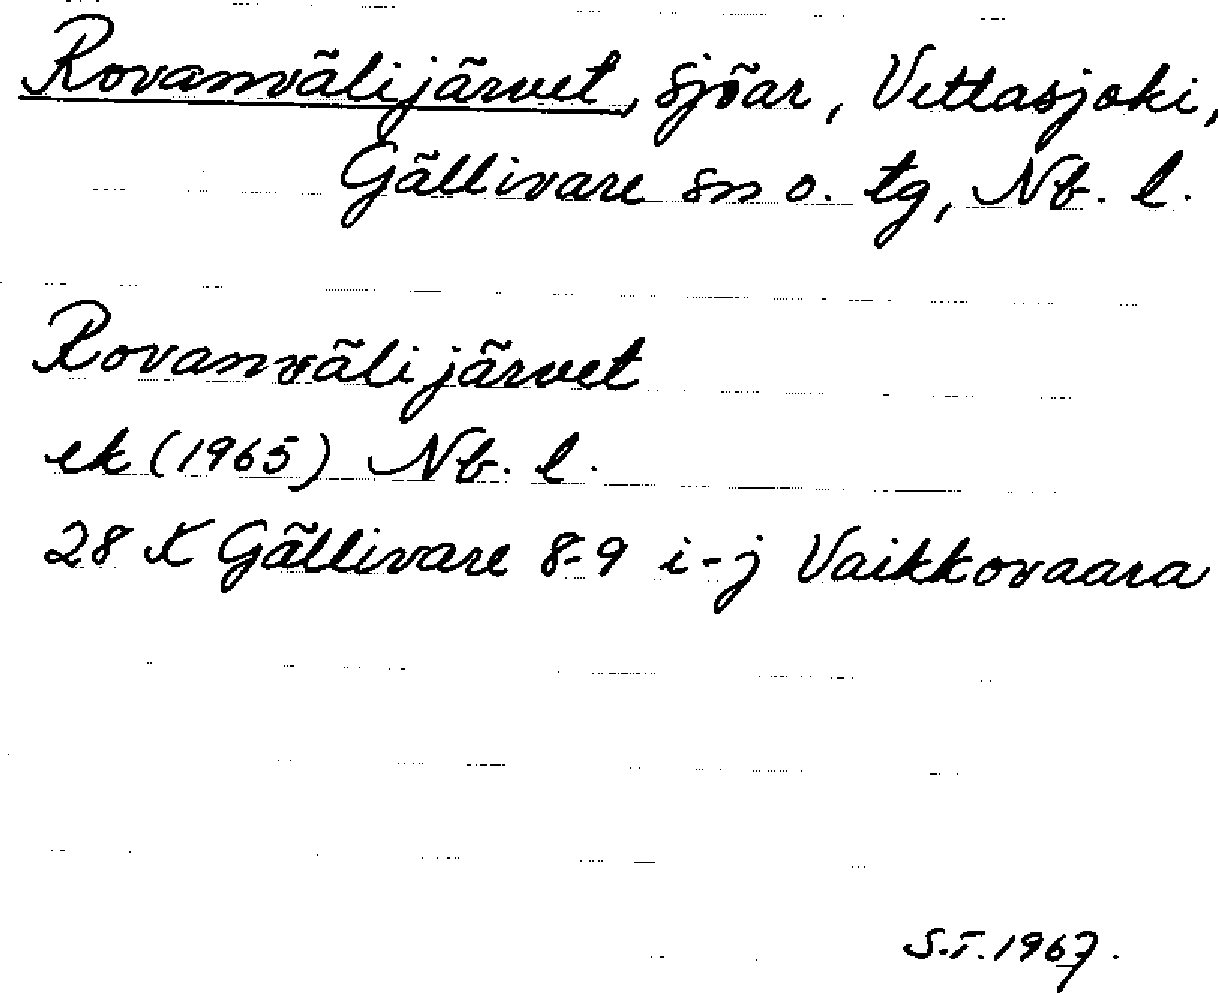 Rovanvälijärvet, sjöar, Vettasjoki,
Gällivare sn o. tg, Nb. l.
Rovanvälijärvet
ek (1965) Nb. l.
28 K Gällivare 8-9 i-j Vaikkovaara
S.T. 1967.